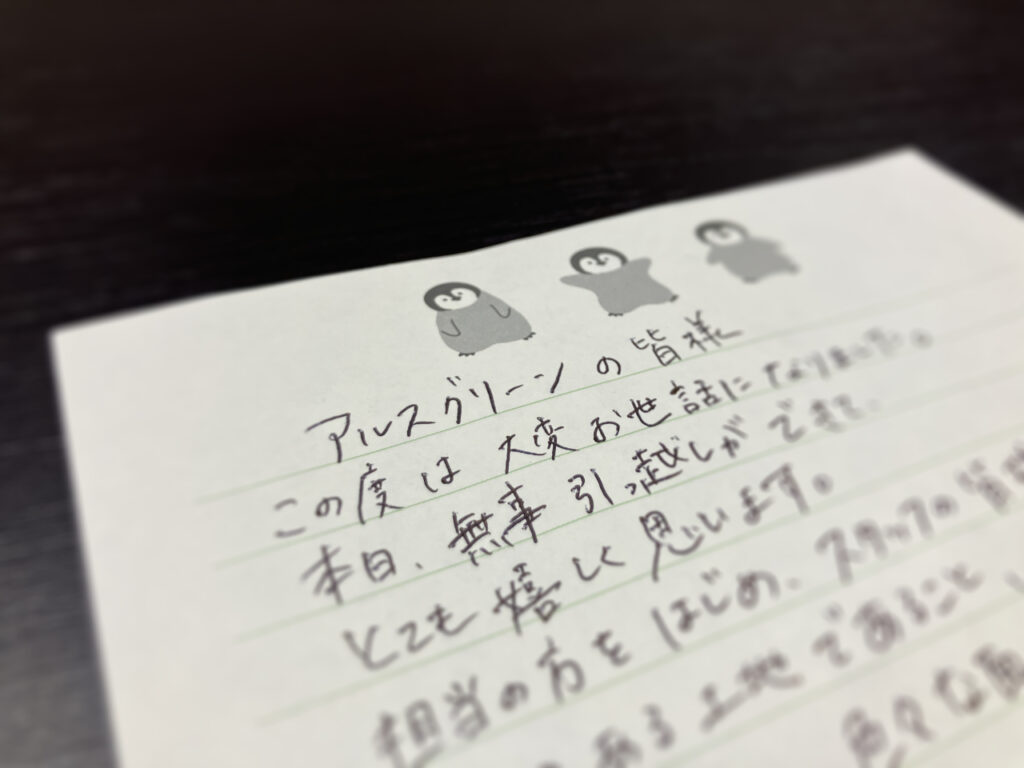 アルスグリーンの皆様
この度は大変お世話になりました。
本日、無事引っ越しができて、
とても嬉しく思います。
担当の方をはじめ、スタッフの皆様
ある土地であること
色々な面